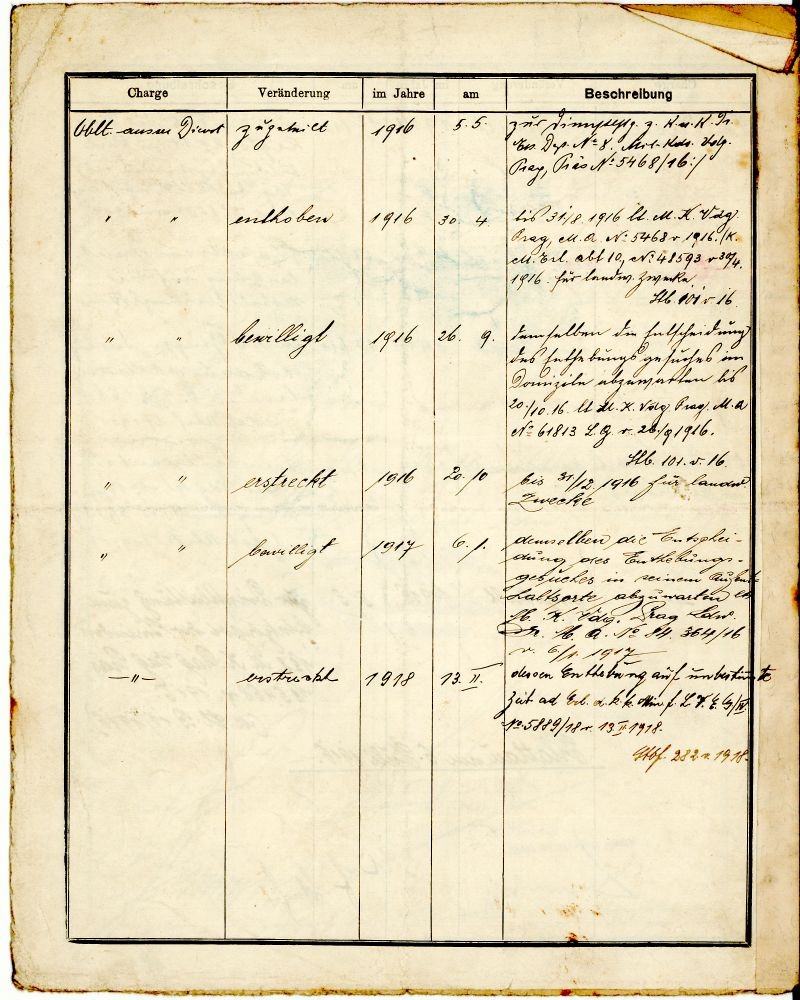 Charge Veränderung im Jahre am Beschreibung
Oblt. ausser Dienst zugeteilt 1916 5. 5. zur Dienstleistg. z. K. u. K.
Ers. Dep. No 8. Mil. Kdo. Vdg.
Prag, Präs No 5468/16 :/
" " enthoben 1916 30. 4. bis 31/8. 1916 lt. M. K. Vdg.
Prag, M. A. No 5468 v 1916. /K.
M. Erl. abt 10, No 48593 v 30/4.
1916. für landw. Zwecke.
Stb. 101 v 16.
" " bewilligt 1916 26. 9. demselben die Entscheidung
des Enthebungsgesuches im
Domizile abzuwarten bis
20./10. 16. lt M. K. Vdg. Prag. M. A
No 61813 v. 26./9 1916.
Stb. 101. v. 16.
" " erstreckt 1916 20. 10 bis 31/12. 1916 für landw.
Zwecke
" " bewilligt 1917 6. 1. demselben die Entschei-
dung des Enthebungs-
gesuches in seinem Aufent-
haltsorte abzuwarten lt.
M. K. Vdg. Prag
M. A. No 84. 364/16
v. 6/1. 1917
—"— erstreckt 1918 13. II. dessen Enthebung auf unbestimmte
Zeit ad Erl. d. k. k. Min f. L. V.
No 5889/18 v. 13 II 1918.
282 v. 1918.